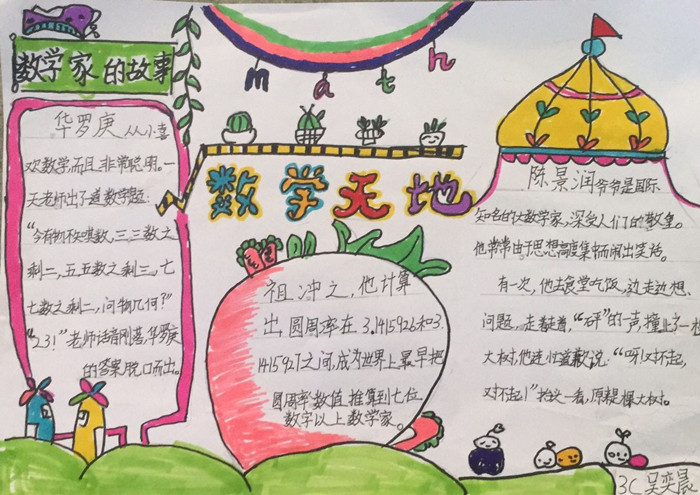 math
数学家的故事
数学天地
华罗庚从小喜
欢数学,而且非常聪明。一
天老师出了道数学题:
“今有物不知其数,三三数之
剩二,五五数之剩三,七
七数之剩二,问物几何?”
“23!”老师话音刚落,华罗庚
的答案脱口而出。
祖冲之,他计算
出,圆周率在3.1415926和3.
1415927之间,成为世界上最早把
圆周率数值推算到七位
数字以上数学家。
陈景润爷爷是国际
知名的大数学家,深受人们的敬重。
他常常由于思想高度集中而闹出笑话。
有一次,他去食堂吃饭,边走边想
问题,走着走着,“砰”的一声,撞上了一棵
大树,他连忙道歉说:“呀!对不起,
对不起!”抬头一看,原来是棵大树。
3C 吴奕晨